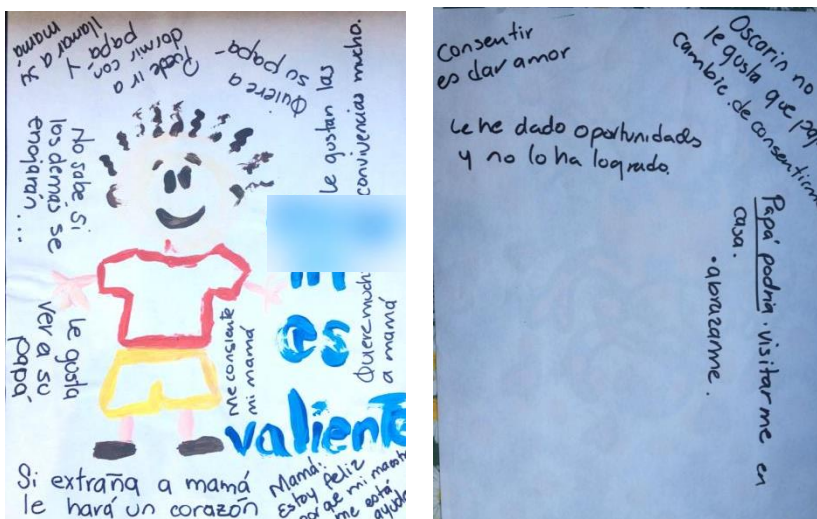 Puede ir a
dormir con
papá y
llamar a su
mamá
Quiere a
su papá
le gustan las
convivencias mucho.
No sabe si
los demás se
enojaran...
le gusta
ver a su
papá
Me consiente
mi mamá
Quiere much
a mamá
es
valiente
Si extraña a mamá
le hará un corazón
Mamá:
Estoy feliz
porque mi maestr
me está
ayuda
Consentir
es dar amor
Le he dado oportunidades
y no lo ha logrado.
Oscarin no
le gusta que pap
cambie. de consentirm
Papá podría · visitarme en
casa.
· abrazarme.